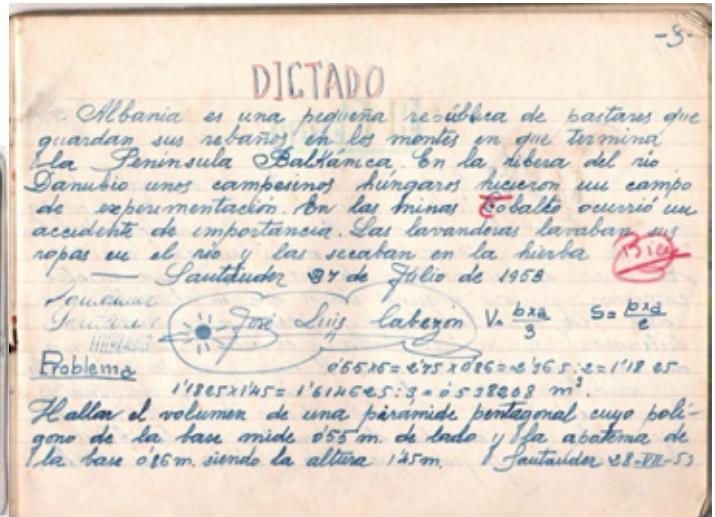 -3-
DICTADO
Albania es una pequeña república de pastares que
guardan sus rebaños en los montes en que termina
la Península Balkánica. En la ribera del río
Danubio unos campesinos húngaros hicieron un campo
de experimentación. En las minas Cobalto ocurrió un
accidente de importancia. Las lavanderas lavaban sus
ropas en el río y las secaban en la hierba Bien
Santander 27 de Julio de 1953
José Luis Cabezon V= bxa/3 S= pxa/2
Problema 0'55x5=2'75x0'86=2'365:2=1'1825
1'1825x1'45= 1'714625:3= 0'538208 m³
Hallar el volumen de una pirámide pentagonal cuyo polí-
gono de la base mide 0'55 m. de lado y la apotema de
la base 0'86 m. siendo la altura 1'45 m. Santander 28-VII-53